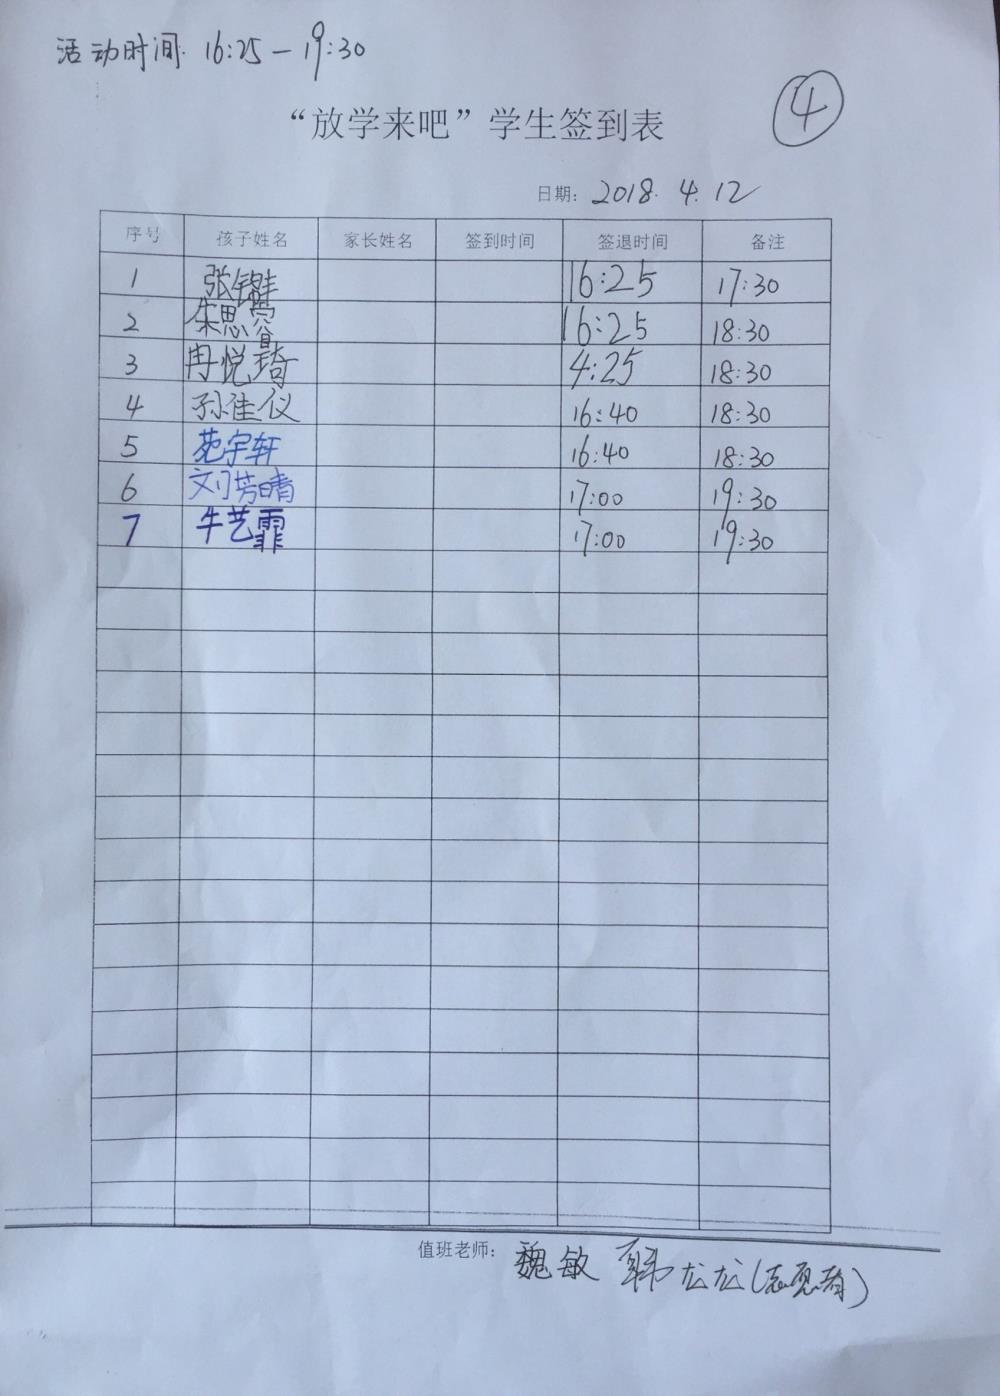 活动时间 16:25—19:30
④
“放学来吧”学生签到表
日期: 2018.4.12
序号 孩子姓名 家长姓名 签到时间 签退时间 备注
1 张 16:25 17:30
2 朱思 16:25 18:30
3 冉悦琦 4:25 18:30
4 孙佳仪 16:40 18:30
5 苑宇轩 16:40 18:30
6 刘芳晴 17:00 19:30
7 牛艺霏 17:00 19:30
值班老师: 魏敏 韩龙龙(志愿者)